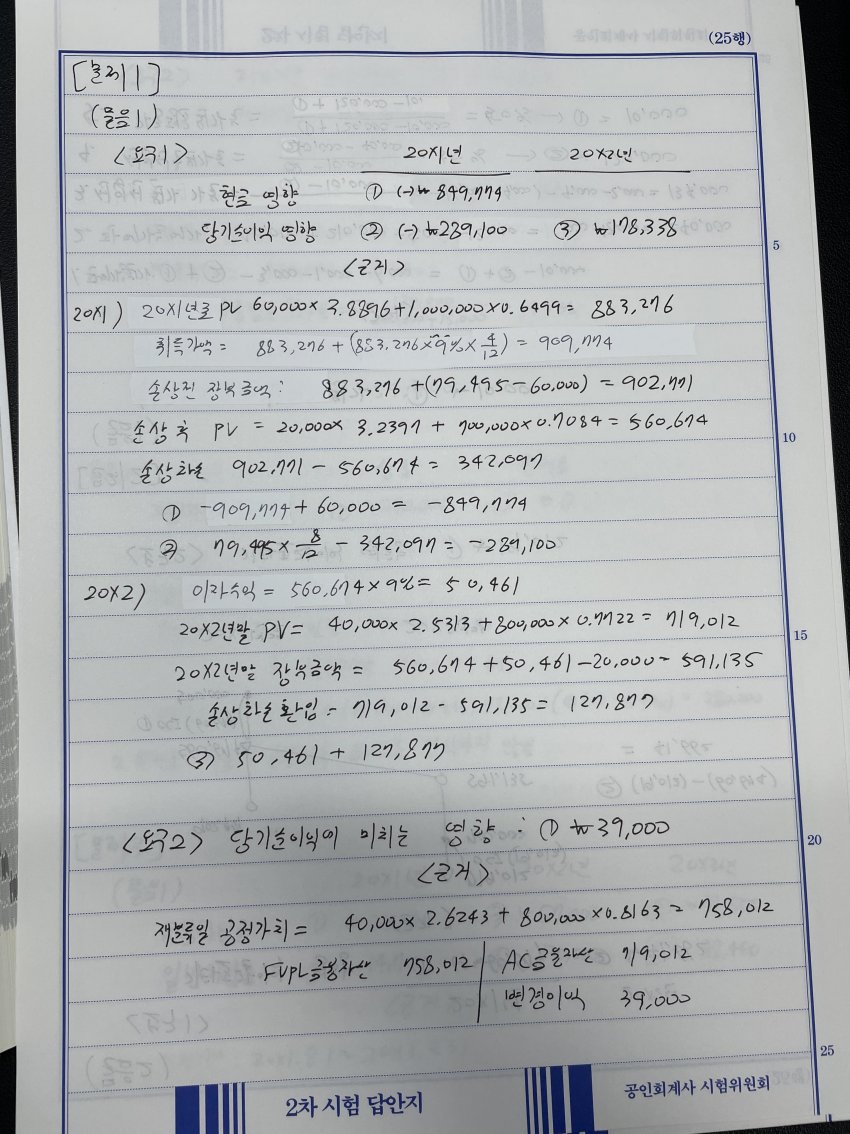 (25행)
[문제 1]
(물음1)
<요구1> 20X1년 20X2년
현금 영향 ① (-)₩849,774
당기순이익 영향 ② (-)₩289,100 ③ ₩178,338
<근거>
20X1) 20X1년초 PV 60,000 × 3.8896 + 1,000,000 × 0.6499 = 883,276
취득가액 = 883,276 + (883,276 × 9% × 4/12) = 909,774
손상전 장부금액 : 883,276 + (79,495 - 60,000) = 902,771
손상 후 PV = 20,000 × 3.2397 + 700,000 × 0.7084 = 560,674
손상차손 902,771 - 560,674 = 342,097
① -909,774 + 60,000 = -849,774
② 79,495 × 8/12 - 342,097 = -289,100
20X2) 이자수익 = 560,674 × 9% = 50,461
20X2년말 PV = 40,000 × 2.5313 + 800,000 × 0.7722 = 719,012
20X2년말 장부금액 = 560,674 + 50,461 - 20,000 = 591,135
손상차손환입 = 719,012 - 591,135 = 127,877
③ 50,461 + 127,877
<요구2> 당기순이익에 미치는 영향 : ① ₩39,000
<근거>
재분류일 공정가치 = 40,000 × 2.6243 + 800,000 × 0.8163 = 758,012
FVPL금융자산 758,012 AC금융자산 719,012
변경이익 39,000
5
10
15
20
25
2차 시험 답안지
공인회계사 시험위원회